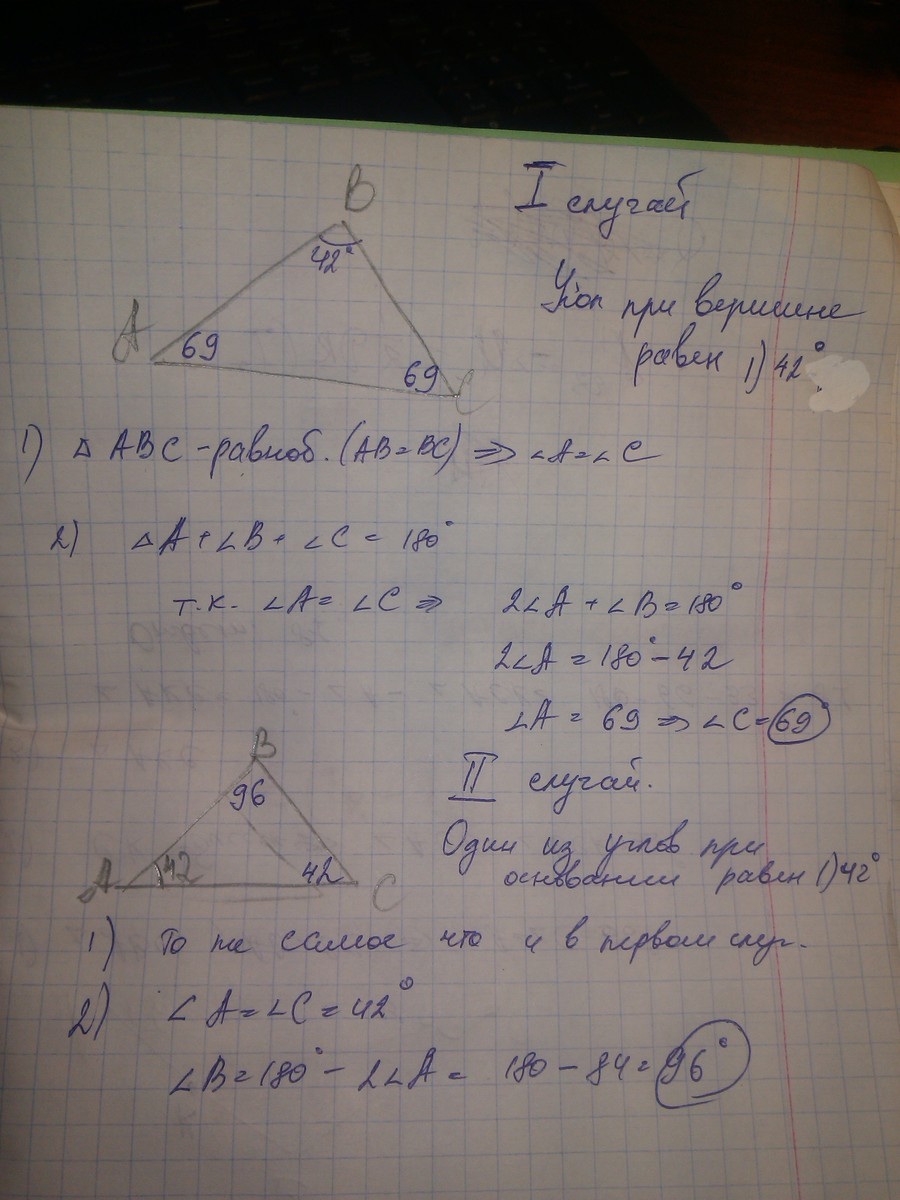 B
I случай
42°
A
69
69
C
Угол при вершине
равен 1) 42°
1) △ ABC - равноб. (AB=BC) => ∠A=∠C
2) ∠A + ∠B + ∠C = 180°
т.к. ∠A = ∠C => 2∠A + ∠B = 180°
2∠A = 180° - 42
∠A = 69 => ∠C = 69°
B
96
II случай.
Один из углов при
A
42
42
C
основании равен 1) 42°
1) То же самое что и в первом случ.
2) ∠A = ∠C = 42°
∠B = 180° - 2∠A = 180 - 84 = 96°